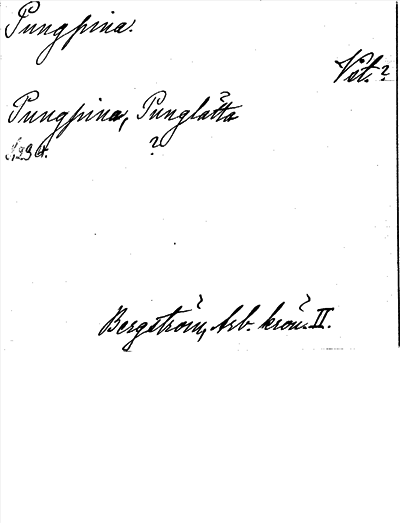 Pungpina.
Vst.?
Pungpina, Punglåtta
S. 236.
?
Bergström, Arb. krön. II.